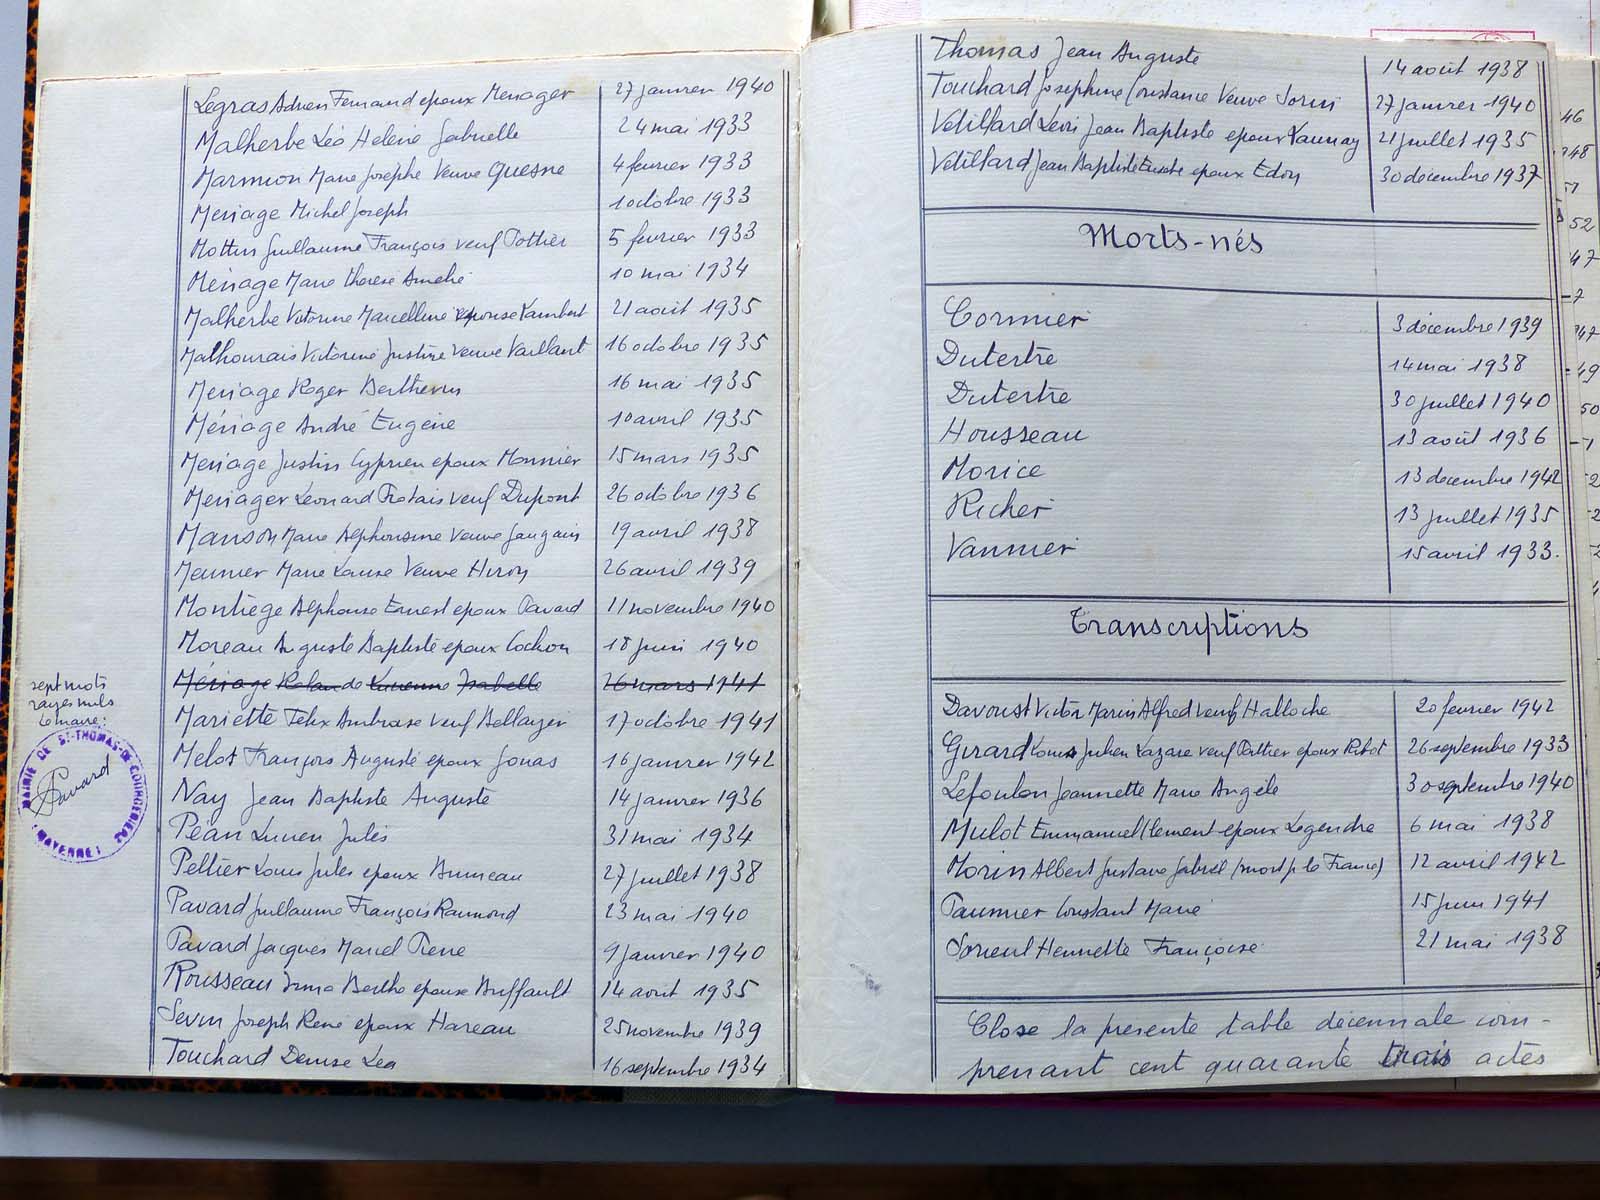 Legras Adrien Fernand epoux Menager 27 janvier 1940
Malherbe Léa Helene Gabrielle 24 mai 1933
Marmion Marie Josephe Veuve Quesne 4 fevrier 1933
Menage Michel Joseph 1 octobre 1933
Mottin Guillaume François veuf Pottier 5 fevrier 1933
Ménage Marie Therese Amelie 10 mai 1934
Malherbe Victorine Marcelline epouse Lambert 21 août 1935
Malhourais Victorine Justine Veuve Vaillant 16 octobre 1935
Menage Roger 16 mai 1935
Ménage André Eugène 10 avril 1935
Menage Justin Cyprien epoux Monnier 15 mars 1935
Menager Leonard Protais veuf Dupont 26 octobre 1936
Manson Marie Alphonsine Veuve Jaugain 19 avril 1938
Meunier Marie Louise Veuve Huron 26 avril 1939
Montiège Alphonse Ernest epoux Pavard 11 novembre 1940
Moreau Auguste Baptiste epoux Cochon 18 juin 1940
Ménage Rolande Lucienne Isabelle 26 mars 1941
sept mots
rayés nuls
Le maire:
MAIRIE DE ST-THOMAS-DE-COURCERIERS (MAYENNE)
Pavard
Mariette Felix Ambroise veuf Bellayer 17 octobre 1941
Melot François Auguste epoux Jouas 16 janvier 1942
Nay Jean Baptiste Auguste 14 janvier 1936
Péan Lucien Jules 31 mai 1934
Peltier Louis Jules epoux Bruneau 27 juillet 1938
Pavard Guillaume François Raimond 23 mai 1940
Pavard Jacques Marcel Pierre 9 janvier 1940
Rousseau Irma Berthe epouse Buffault 14 août 1935
Sevin Joseph René epoux Hareau 25 novembre 1939
Touchard Denise Léa 16 septembre 1934
Thomas Jean Auguste 14 août 1938
Touchard Josephine Constance Veuve Sorin 27 janvier 1940
Vetillard Léon Jean Baptiste epoux Launay 21 juillet 1935
Vetillard Jean Baptiste epoux Edon 30 decembre 1937
Morts-nés
Cormier 3 décembre 1939
Dutertre 14 mai 1938
Dutertre 30 juillet 1940
Housseau 13 août 1936
Morice 13 decembre 1942
Richer 13 juillet 1935
Vannier 15 avril 1933.
Transcriptions
Davoust Victor Marin Alfred veuf Halloche 20 fevrier 1942
Girard Louis Julien Lazare veuf Pottier epoux Ribot 26 septembre 1933
Lefoulon Jeannette Marie Angèle 30 septembre 1940
Mulot Emmanuel Clement epoux Legendre 6 mai 1938
Morin Albert Gustave Gabriel (mort p. la France) 12 avril 1942
Paumier Constant Marie 15 juin 1941
Sorieul Henriette Françoise 21 mai 1938
Close la presente table décennale com-
prenant cent quarante trois actes